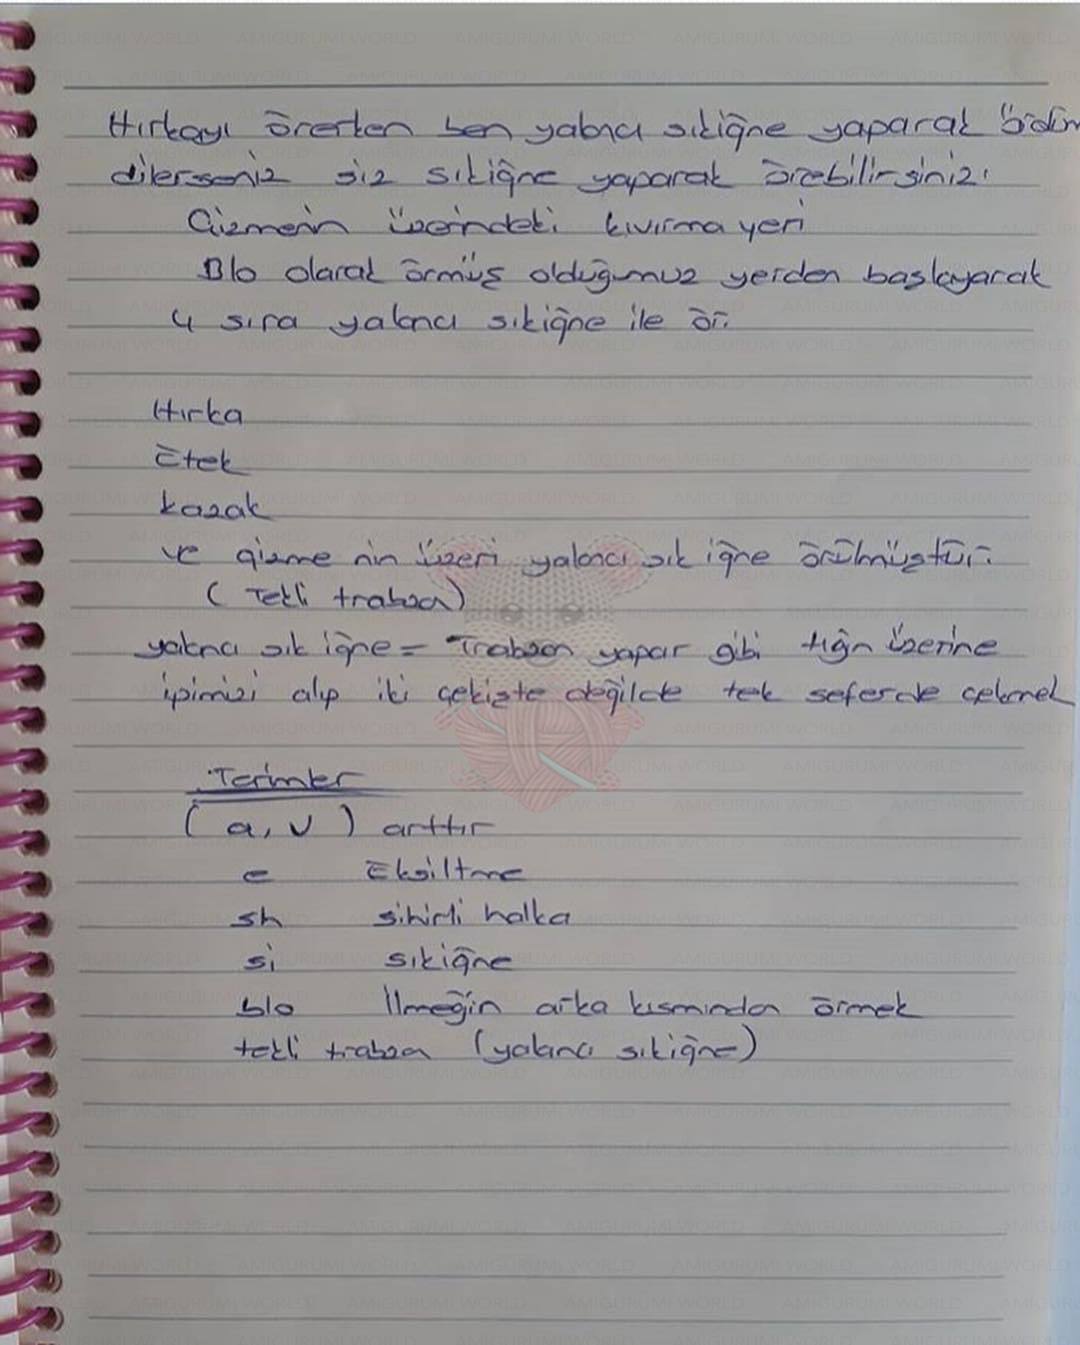 Hırkayı örerken ben yalancı sıkiğne yaparak ördüm
dilerseniz siz sıkiğne yaparak örebilirsiniz.
Çizmenin üzerindeki kıvırma yeri
Blo olarak örmüş olduğumuz yerden başlayarak
4 sıra yalancı sıkiğne ile ör.
Hırka
Etek
kazak
ve çizme nin üzeri yalancı sık iğne örülmüştür.
(Tekli trabzan)
yalancı sık iğne = Trabzan yapar gibi tığın üzerine
ipimizi alıp iki çekişte değilde tek seferde çekmek
Terimler
(a, v) arttır
e Eksiltme
sh sihirli halka
si sıkiğne
blo İlmeğin arka kısmından örmek
tekli trabzan (yalancı sıkiğne)
AMIGURUMI WORLD